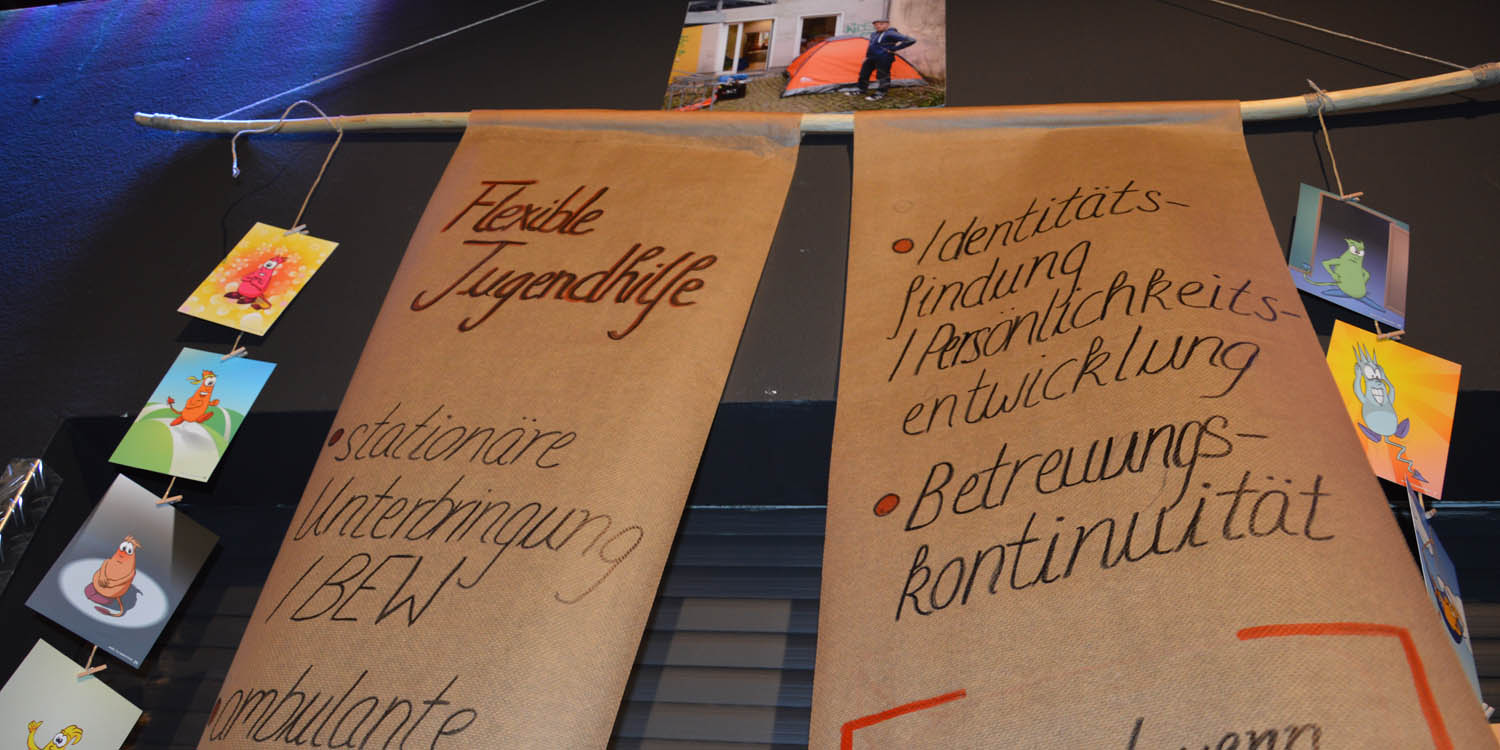 Flexible
Jugendhilfe
•stationäre
Unterbringung
/BEW
•ambulante
•Identitäts-
findung
/Persönlichkeits-
entwicklung
•Betreuungs-
kontinuität
wenn